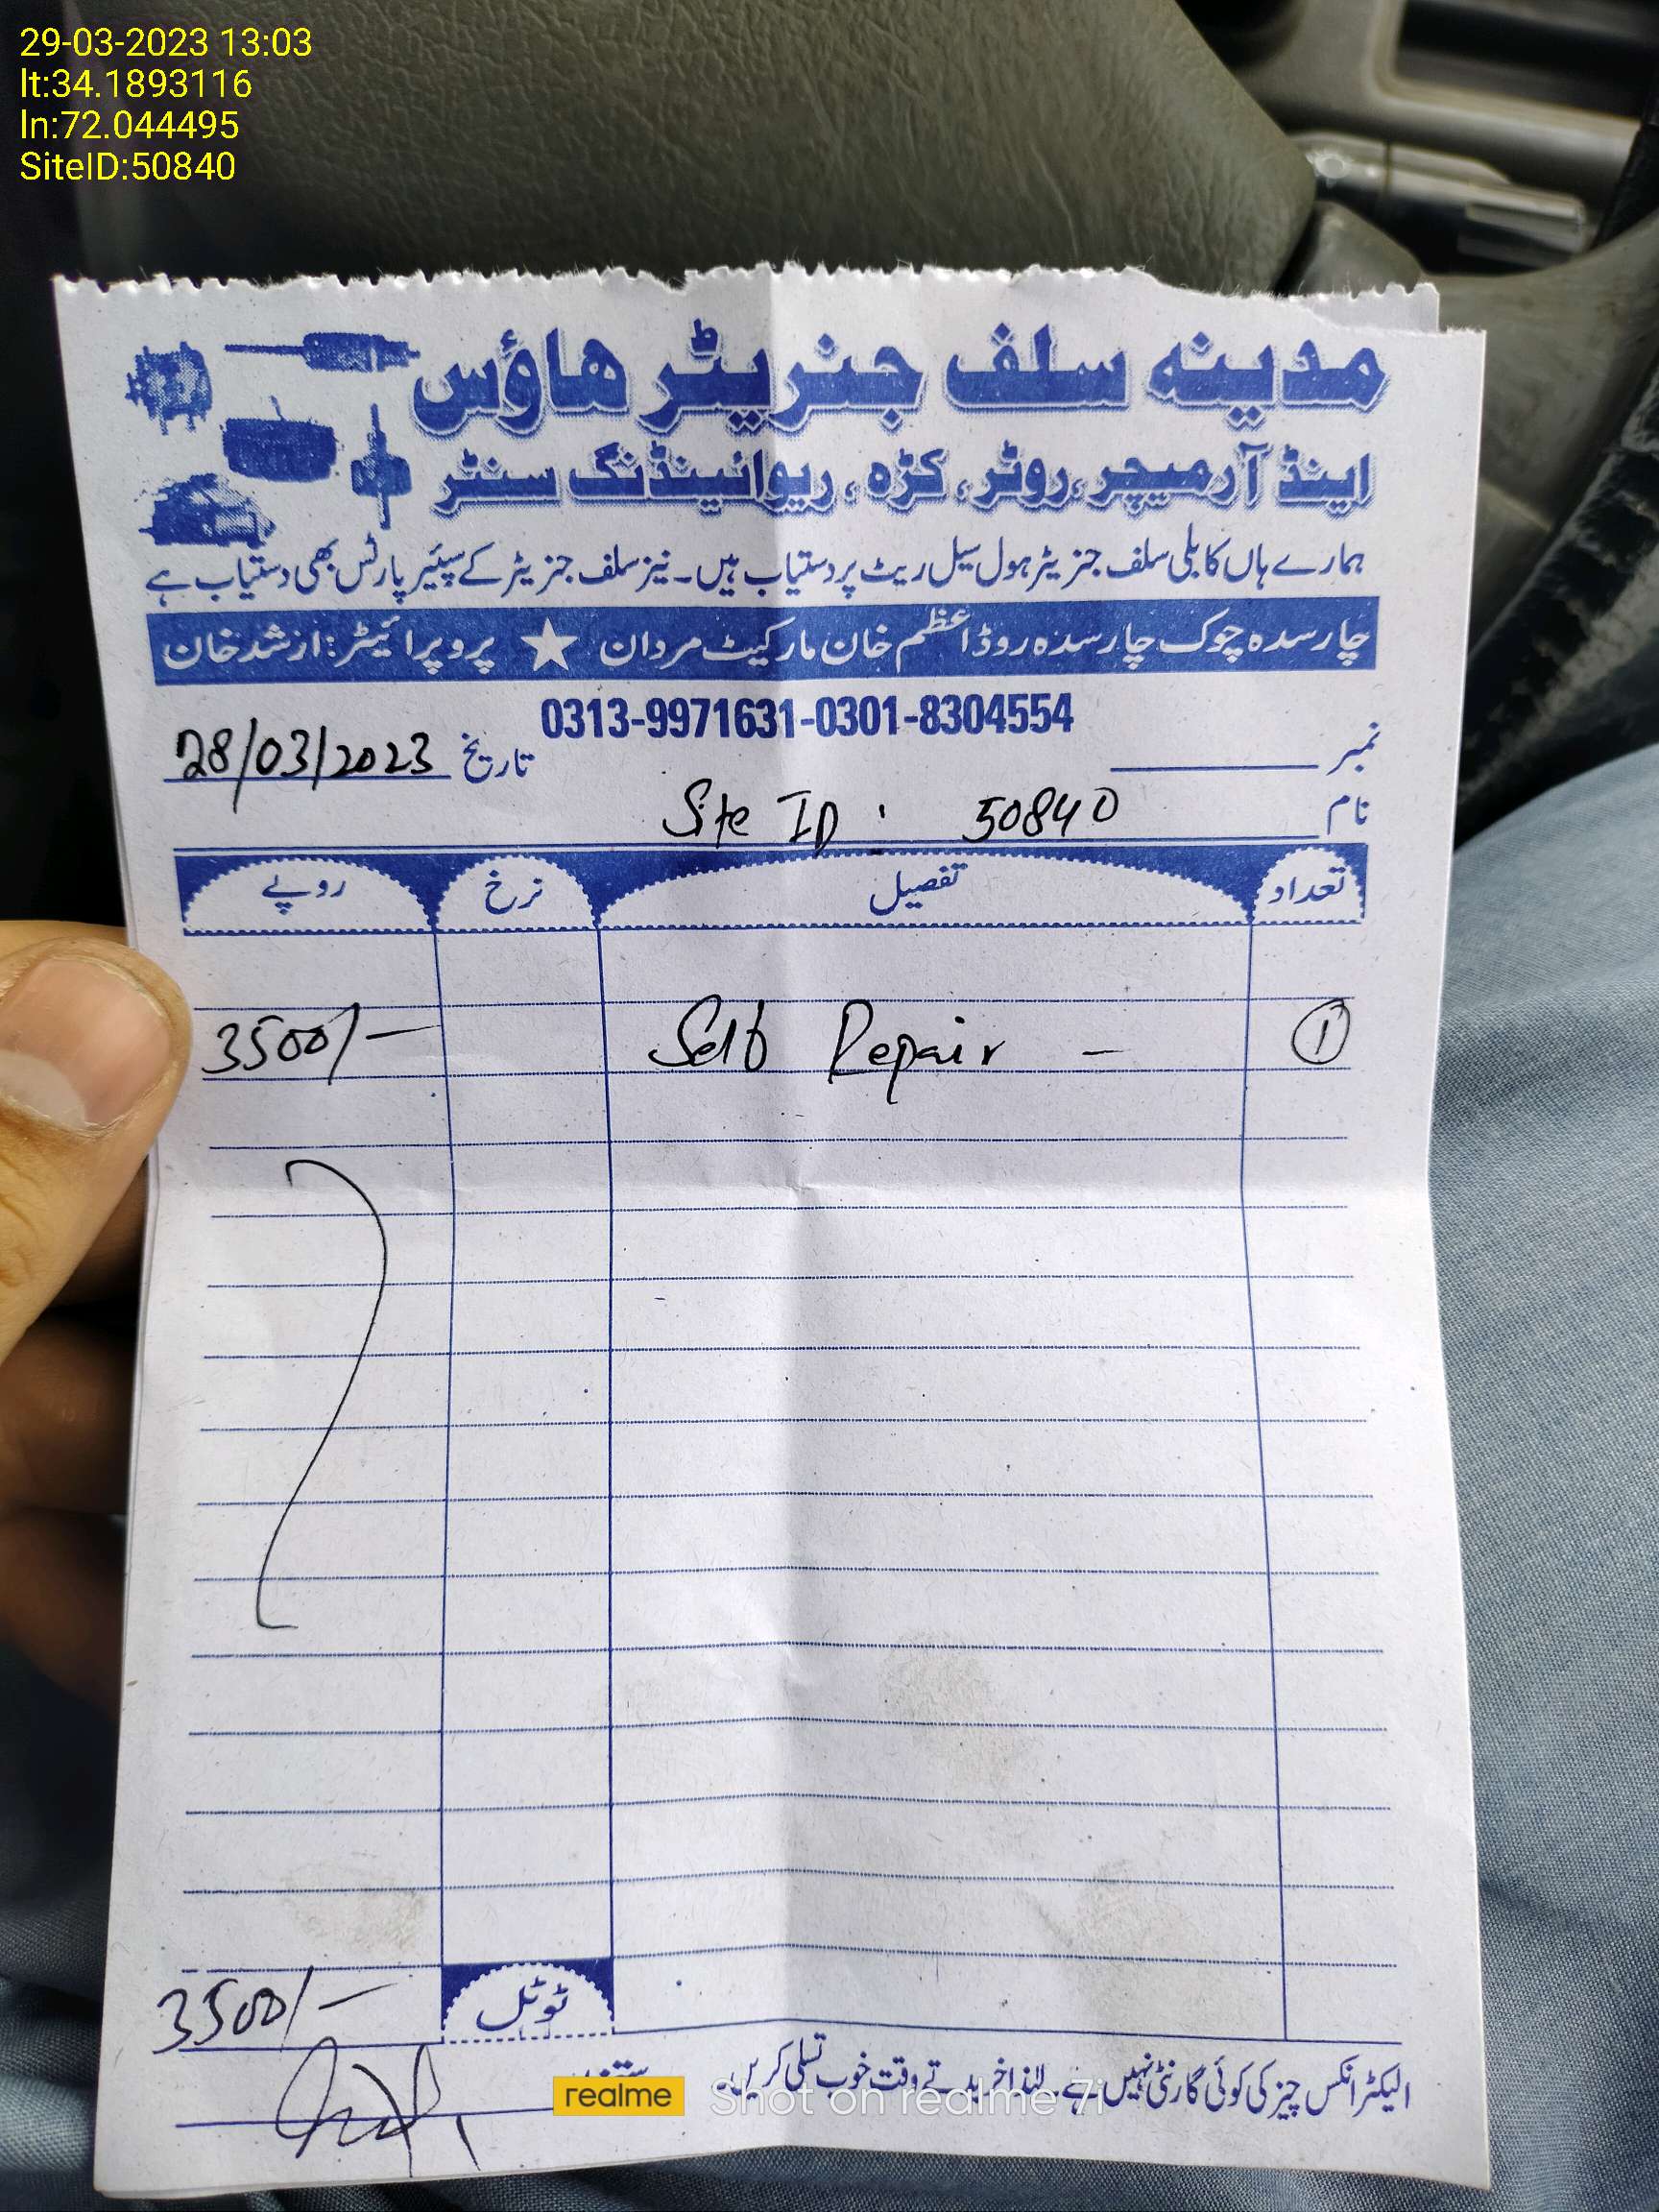 29-03-2023 13:03
lt:34.1893116
ln:72.044495
SiteID:50840
مدینہ سلف جنریٹر ھاؤس
اینڈ آرمیچر، روٹر، کڑہ، ریوائینڈنگ سنٹر
ہمارے ہاں کابلی سلف جنریٹر ہول سیل ریٹ پر دستیاب ہیں۔ نیز سلف جنریٹر کے سپئیر پارٹس بھی دستیاب ہے
چارسدہ چوک چارسدہ روڈ اعظم خان مارکیٹ مردان ★ پروپرائیٹر: ارشد خان
0313-9971631-0301-8304554
نمبر تاریخ 28/03/2023
نام Site ID : 50840
تعداد تفصیل نرخ روپے
① Self Repair - 3500/-
ٹوٹل 3500/-
الیکٹرانکس چیز کی کوئی گارنٹی نہیں ہے۔ لہٰذا خریدتے وقت خوب تسلی کریں۔
realme Shot on realme 7i